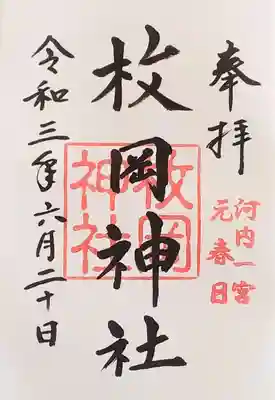 奉拝
河内一宮
元春日
枚岡神社
枚岡
神社
令和三年六月二十日